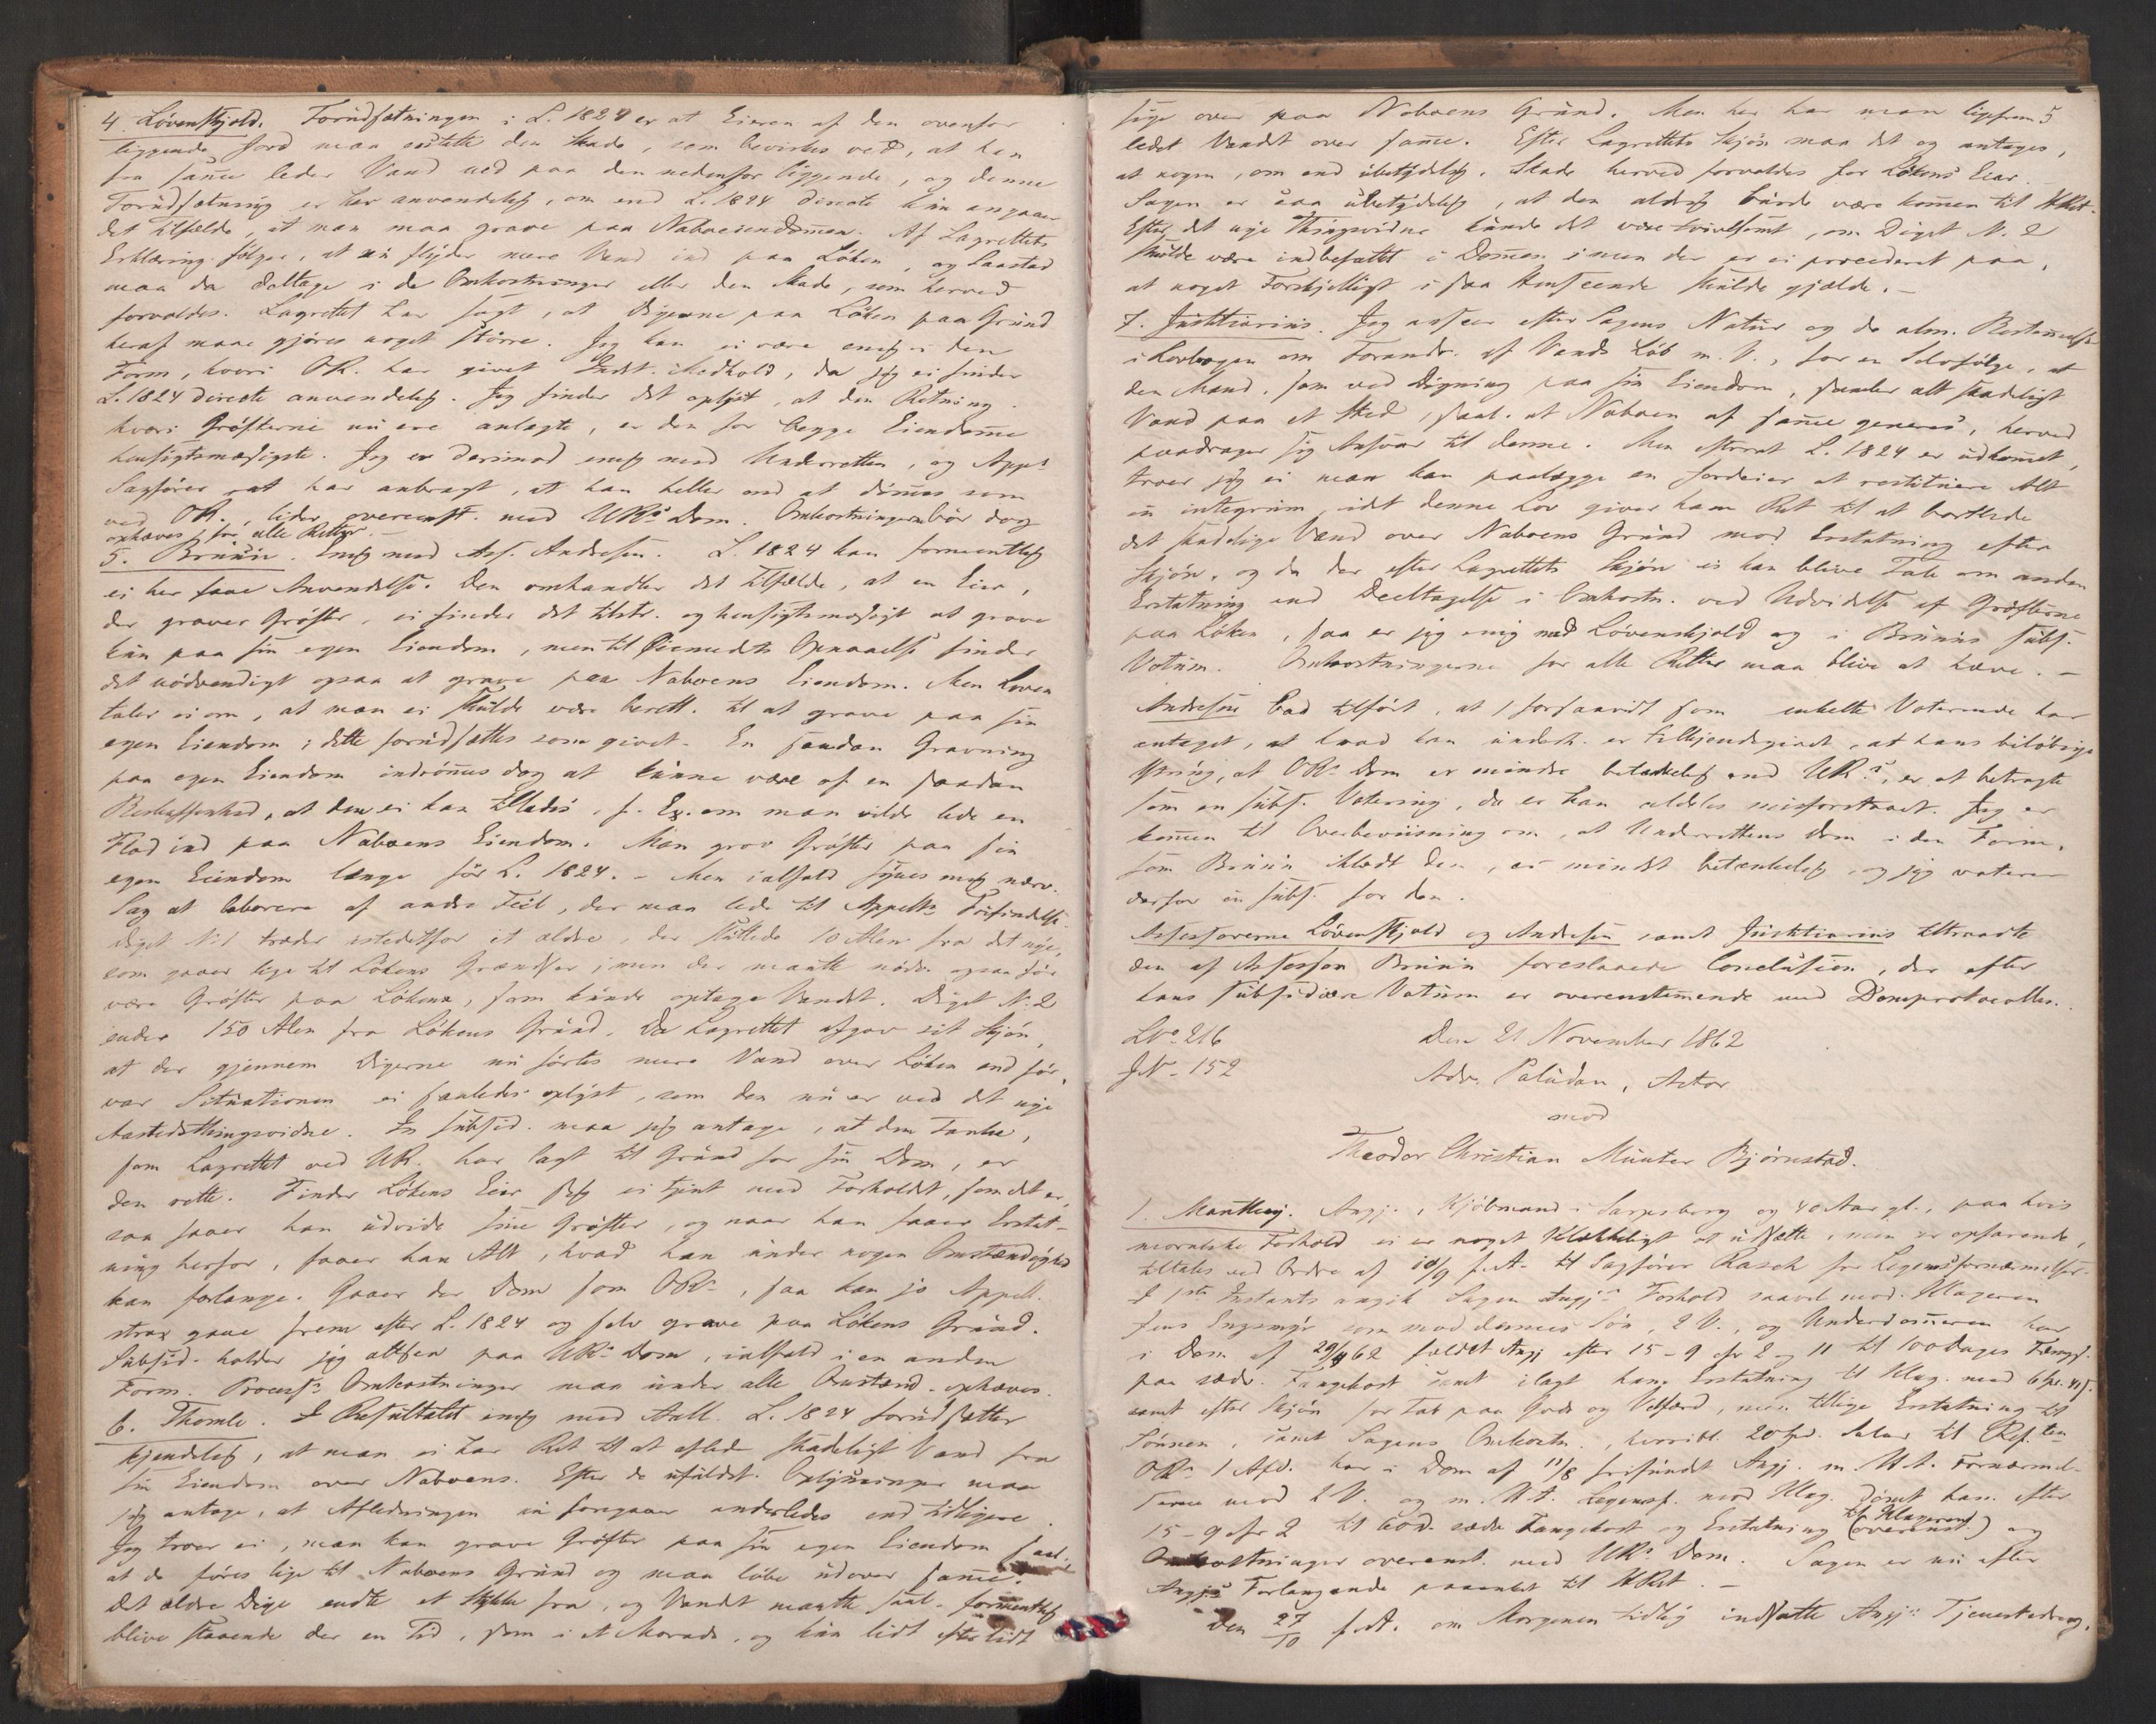 4. Lövenskjold. Forudsætningen i L. 1824 er at Eieren af den ovenfor
liggende Jord maa erstatte den Skade, som bevirkes ved, at han
fra samme leder Vand ned paa den nedenfor liggende, og denne
Forudsætning er her anvendelig, om end L. 1824 directe kun angaaer
det Tilfælde, at man maa grave paa Naboeiendommen. Af Lagrettets
Erklæring følger, at nu flyder mere Vand ind paa Löken, og Saastad
maa da deltage i de Omkostninger eller den Skade, som herved
forvoldes. Lagrettet har sagt, at Digerne paa Löken paa Grund
heraf maae gjöres noget större. Jeg kan ei være enig i den
Form, hvori OR. har givet Indst. Medhold, da jeg ei finder
L. 1824 directe anvendelig. Jeg finder det oplyst, at den Retning
hvori Gröfterne nu ere anlagte, er den for begge Eiendomme
hensigtsmæsigste. Jeg er derimod enig med Underretten, og Appts
Sagförer at har anbragt, at han heller end at dömmes som
ved OR., lider overenst. med URs Dom. Omkostningerne bör dog
ophæves for alle Retter. –
5. Brunin. Enig med Ass. Andresen. L. 1824 kan formentlig
ei her faae Anvendelse. Den omhandler det Tilfælde, at en Eier,
der graver Gröfter, ei finder det tilstr. og hensigtsmæsigt at grave
kun paa sin egen Eiendom, men til Öiemedets Opnaaelse finder
det nödvendigt ogsaa at grave paa Naboens Eiendom. Men Loven
taler ei om, at man ei skulde være berett. til at grave paa sin
egen Eiendom; dette forudsættes som givet. En saadan Gravning
paa egen Eiendom indrömmes dog at kunne være af en saadan
Beskaffenhed, at den ei kan tillades, f. Ex. om man vilde lede en
Flod ind paa Naboens Eiendom. Man grov Gröfter paa sin
egen Eiendom længe för L. 1824. – Men ialfald synes mig nærv.
Sag at laborere af andre Feil, der maa lede til Appelts Frifindelse.
Diget No 1 træder istedetfor et ældre, der sluttede 10 Alen fra det nye,
som gaaer lige til Lökens Grændser; men der maatte nödv. ogsaa för
være Gröfter paa Lökene, som kunde optage Vandet. Diget N. 2
ender 150 Alen fra Lökens Grund. Da Lagrettet afgav sit Skjön,
at der gjennem Digerne nu förtes mere Vand over Löken end för,
var Situationen ei saaledes oplyst, som den nu er ved det nye
Aastedsthingsvidne. In subsid. maa jeg antage, at den Tanke,
som Lagrettet ved UR. har lagt til Grund for sin Dom, er
den rette. Finder Lökens Eier sig ei tjent med Forholdet, som det er,
saa faaer han udvide sine Gröfter, og naar han faaer Erstat-
ning herfor, faaer han Alt, hvad han under nogen Omstændighed
kan forlange. Gaaer der Dom som ORs, saa kan jo Appell.
strax gaae frem efter L. 1824 og selv grave paa Lökens Grund.
Subsid. holder jeg altsaa paa URs Dom, ialfald i en anden
Form. Process's Omkostninger maa under alle Omstænd. ophæves.
6. Thomle. I Resultatet enig med Aall. L. 1824 forudsætter
kjendelig, at man ei har Ret til at aflede skadeligt Vand fra
sin Eiendom over Naboens. Efter de ufuldst. Oplysninger maa
jeg antage, at Afledningen nu foregaaer anderledes end tidligere.
Jeg troer ei, man kan grave Gröfter paa sin egen Eiendom saal.
at de föres lige til Naboens Grund og maa löbe udover samme.
Det ældre Dige endte et Stykke fra, og Vandet maatte saal. formentlig
blive staaende der en Tid, som i et Morads, og kun lidt efter lidt
5
sige over paa Naboens Grund. Men her har man ligefrem
ledet Vandet over samme. Efter Lagrettets Skjön maa det og antages,
at nogen, om end ubetydelig, Skade herved forvoldes for Lökens Eier.
Sagen er saa ubetydelig, at den aldrig burde være kommen til HRet.
Efter det nye Thingsvidne kunde det være tvivlsomt, om Diget N. 2
skulde være indbefattet i Dommen; men der er ei procederet paa,
at noget Forskjelligt i saa Henseende skulde gjælde. –
7. Justitiarius. Jeg anseer efter Sagens Natur og de alm. Bestemmelser
i Lovbogen om Forandr. af Vands Löb m. V., for en Selvfölge, at
den Mand, som ved Digning paa sin Eiendom, samler alt skadeligt
Vand paa et Sted, saal. at Naboen af samme generes, herved
paadrager sig Ansvar til denne. Men efterat L. 1824 er udkommet,
troer jeg ei man kan paalægge en Jordeier at restituere Alt
in integrum, idet denne Lov giver ham Ret til at bortlede
det skadelige Vand over Naboens Grund mod Erstatning efter
Skjön, og da der efter Lagrettets Skjön ei kan blive Tale om anden
Erstatning end Deeltagelse i Omkostn. ved Udvidelse af Gröfterne
paa Löken, saa er jeg enig med Lövenskjold og i Brunins subs.
Votum. Omkostningerne for alle Retter maa blive at hæve. –
Andresen bad tilfört, at forsaavidt som enkelte Voterende har
antaget, at hvad han underh. er tilkjendegivet, at hans bilöbige
Ytring, at ORs Dom er mindre betænkelig end URs, er at betragte
som en subs. Votering, da er han aldeles misforstaaet. Jeg er
kommen til Overbeviisning om, at Underrettens Dom i den Form,
som Brunin iklædt den, er mindst betænkelig, og jeg voterer
derfor in subs. for den.
Assessorerne Lövenskjold og Andresen samt Justitiarius tiltraadte
den af Assessor Brunin foreslaaede Conclusion, der efter
hans subsidiære Votum er overensstemmende med Domprotocollen.
LNo 216
Den 21 November 1862
JN. 152
Adv. Paludan, Actor
mod
Theodor Christian Münter Bjørnstad.
1. Manthey. Angj., Kjöbmand i Sarpsborg og 40 Aar gl., paa hvis
moralske Forhold ei er noget Klækkeligt at udsætte, men er opfarende,
tiltales ved Ordre af 10/9 f. A. til Sagförer Rasch for Legemsfornærmelser.
I 1ste Instants angik Sagen Angjs Forhold saavel mod Klageren
Jens Engsmyr som mod dennes Sön, 2 V., og Underdommeren har
i Dom af 29/4 62 fældet Angj. efter 15 – 9 cfr 2 og 11 til 100 Dages Fængs.
paa sædv. Fangekost samt ilagt ham Erstatning til Klag. med
samt efter Skjön for Tab paa Gods og Velfærd, men tillige Erstatning til
Sönnen, samt Sagens Omkostn., herribl. 20 Spd. Salar til Ref.ten
ORs 1 Afd. har i Dom af 11/8 frifundet Angj. m. H. t. Fornærmel-
serne mod 2 V. og m. H. t. Legemsf. mod Klag. dömt ham efter
15 – 9 cfr 2 til 60 D. sædv. Fangekost og Erstatning til Klageren (overenst.) og
Omkostninger overenst. med URs Dom. Sagen er nu efter
Angjs Forlangende paaanket til HRet. –
Den 27/10 f. A. om Morgenen tidlig indsatte Angjs Tjenestedreng,